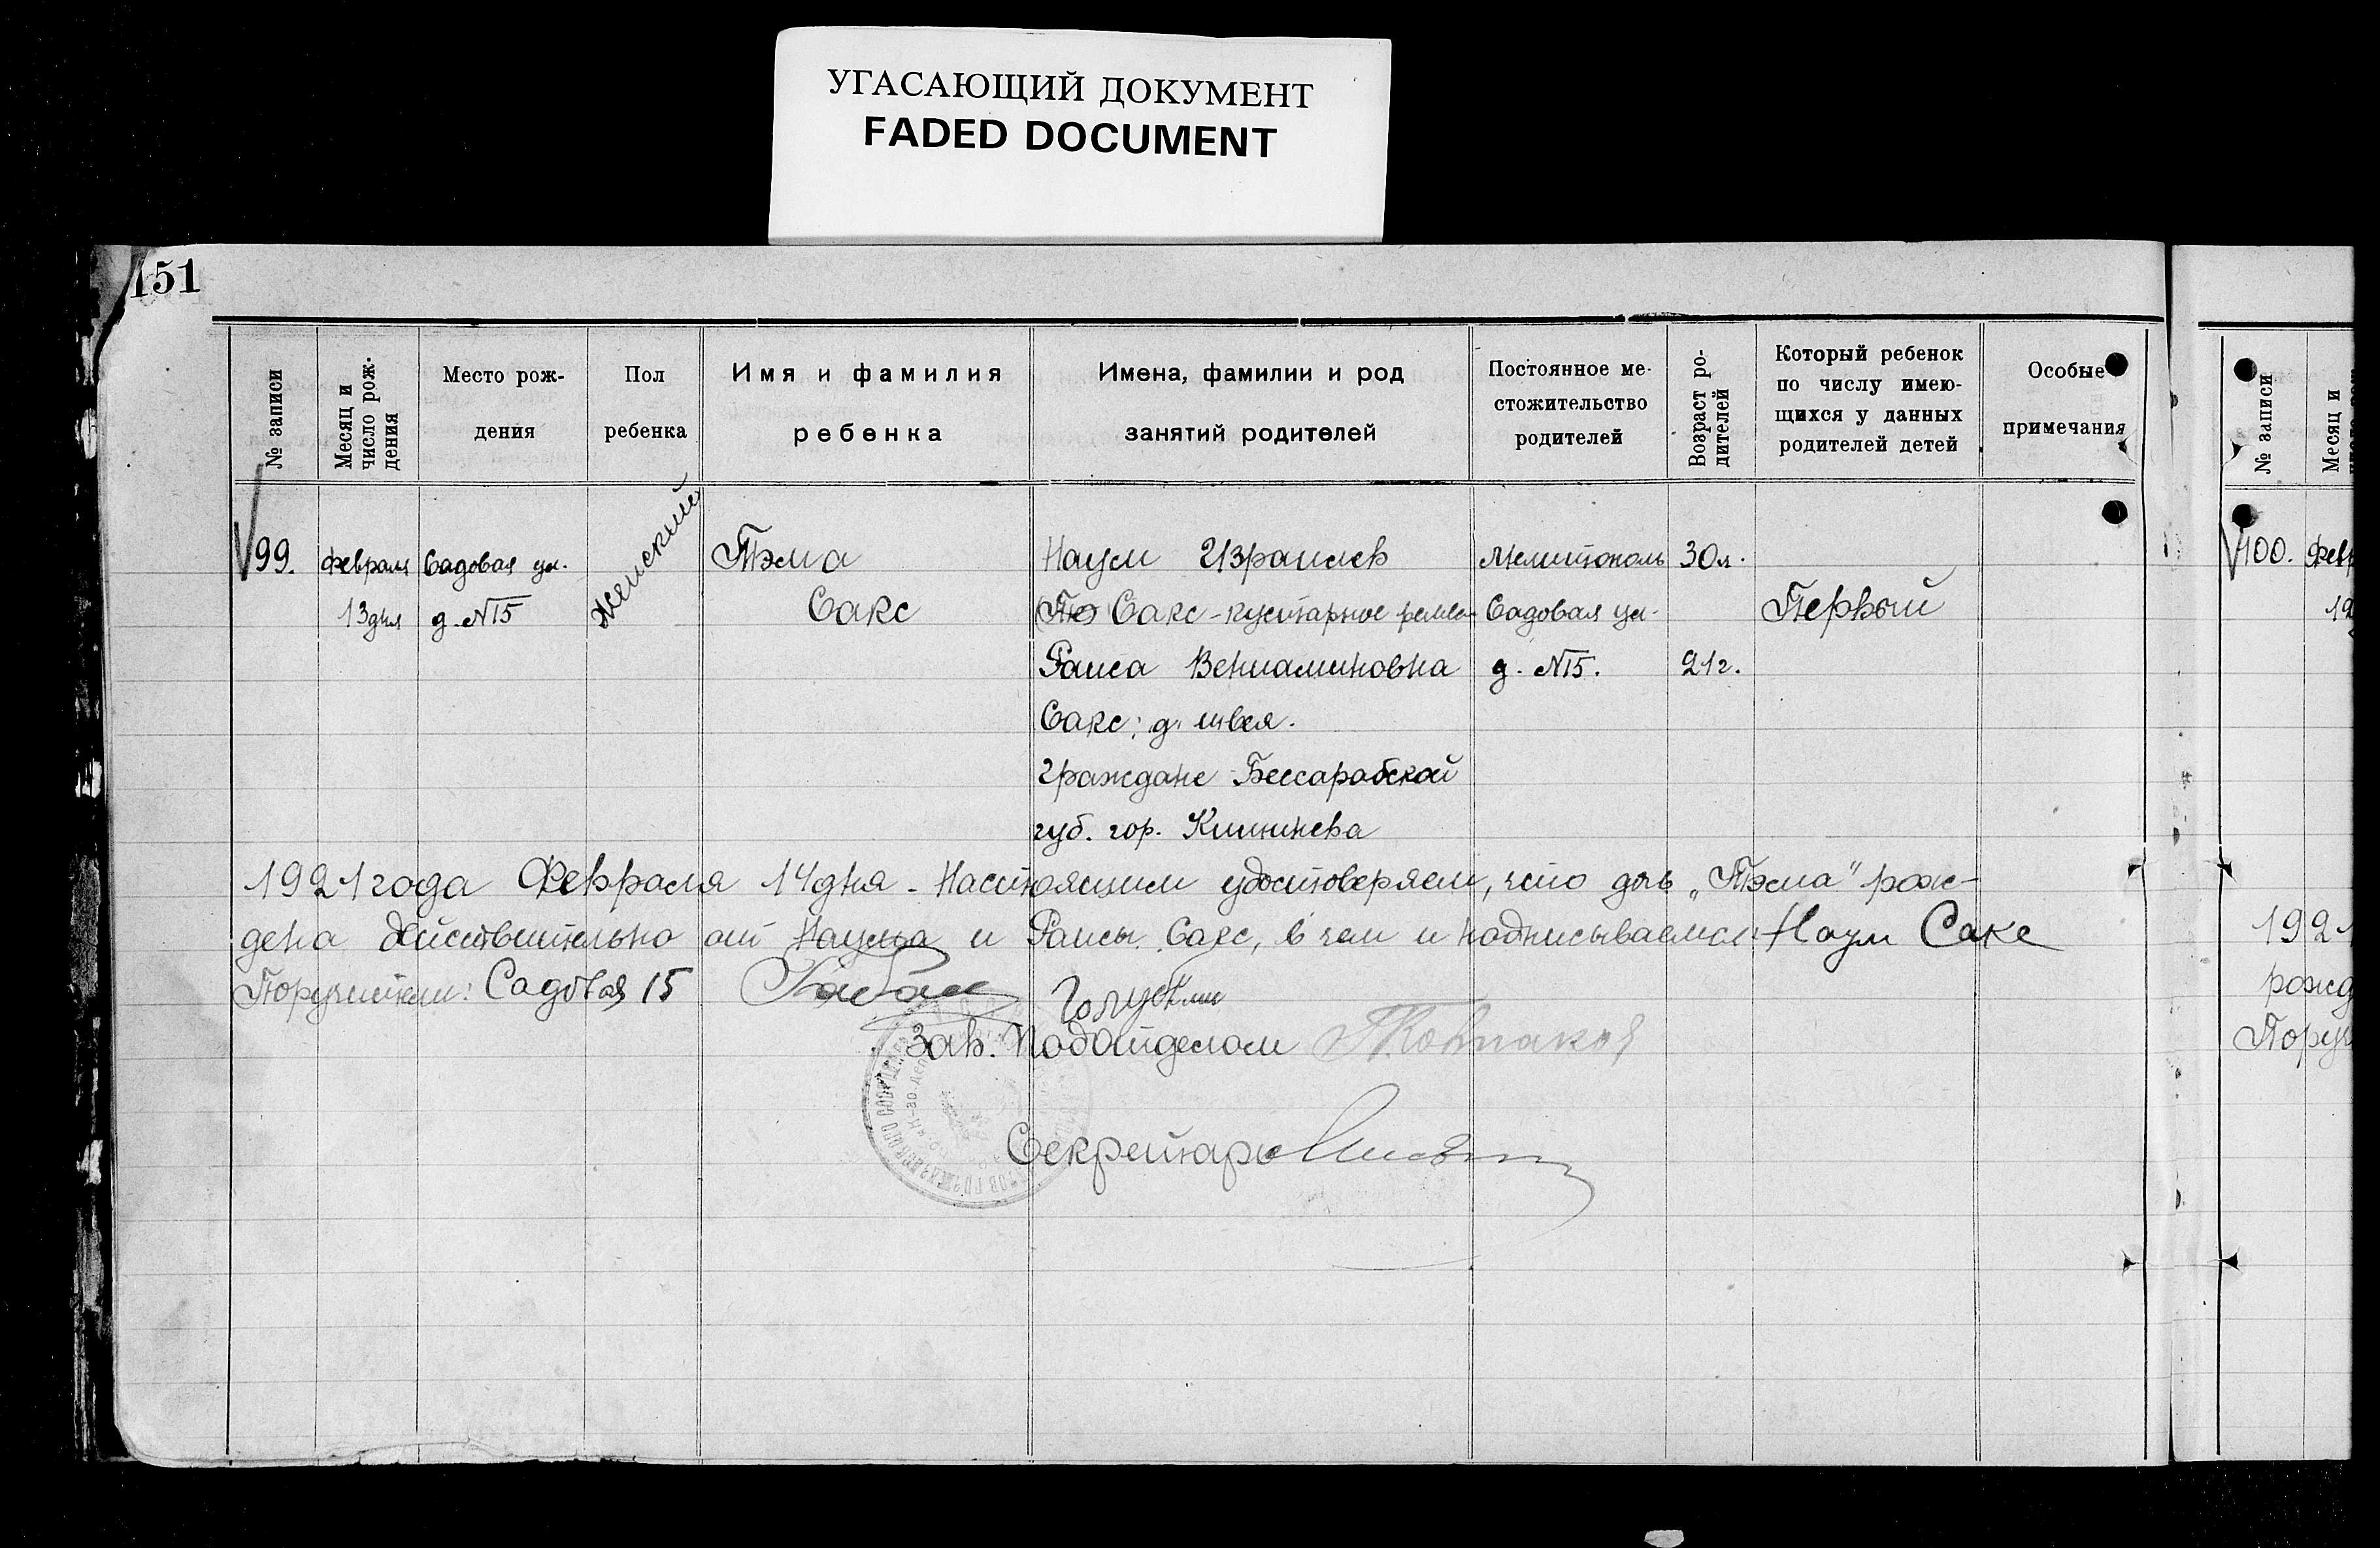 УГАСАЮЩИЙ ДОКУМЕНТ
FADED DOCUMENT
151
№ записи
Месяц и
число рож-
дения
Место рож-
дения
Пол
ребенка
Имя и фамилия
ребенка
Имена, фамилии и род
занятий родителей
Постоянное ме-
стожительство
родителей
Возраст ро-
дителей
Который ребенок
по числу имею-
щихся у данных
родителей детей
Особые
примечания
99.
Февраля
13 дня
Садовая ул.
д. №15
Женский
Тэма
Сакс
Наум Израилев
Сакс - кустарное ремес
Раиса Вениаминовна
Сакс; д. швея.
Граждане Бессарабской
губ. гор. Кишинева
Мелитополь
Садовая ул.
д. №15.
30 л.
21 г.
Первый
1921 года Февраля 14 дня. Настоящим удостоверяем, что дочь „Тэма" рож-
дена действительно от Наума и Раисы Сакс, в чем и подписываемся: Наум Сакс
Поручители: Садовая 15
Зав. Подотделом
Секретарь
№ записи
Месяц и
100.
Февр
19
1921
рожд
Поруч